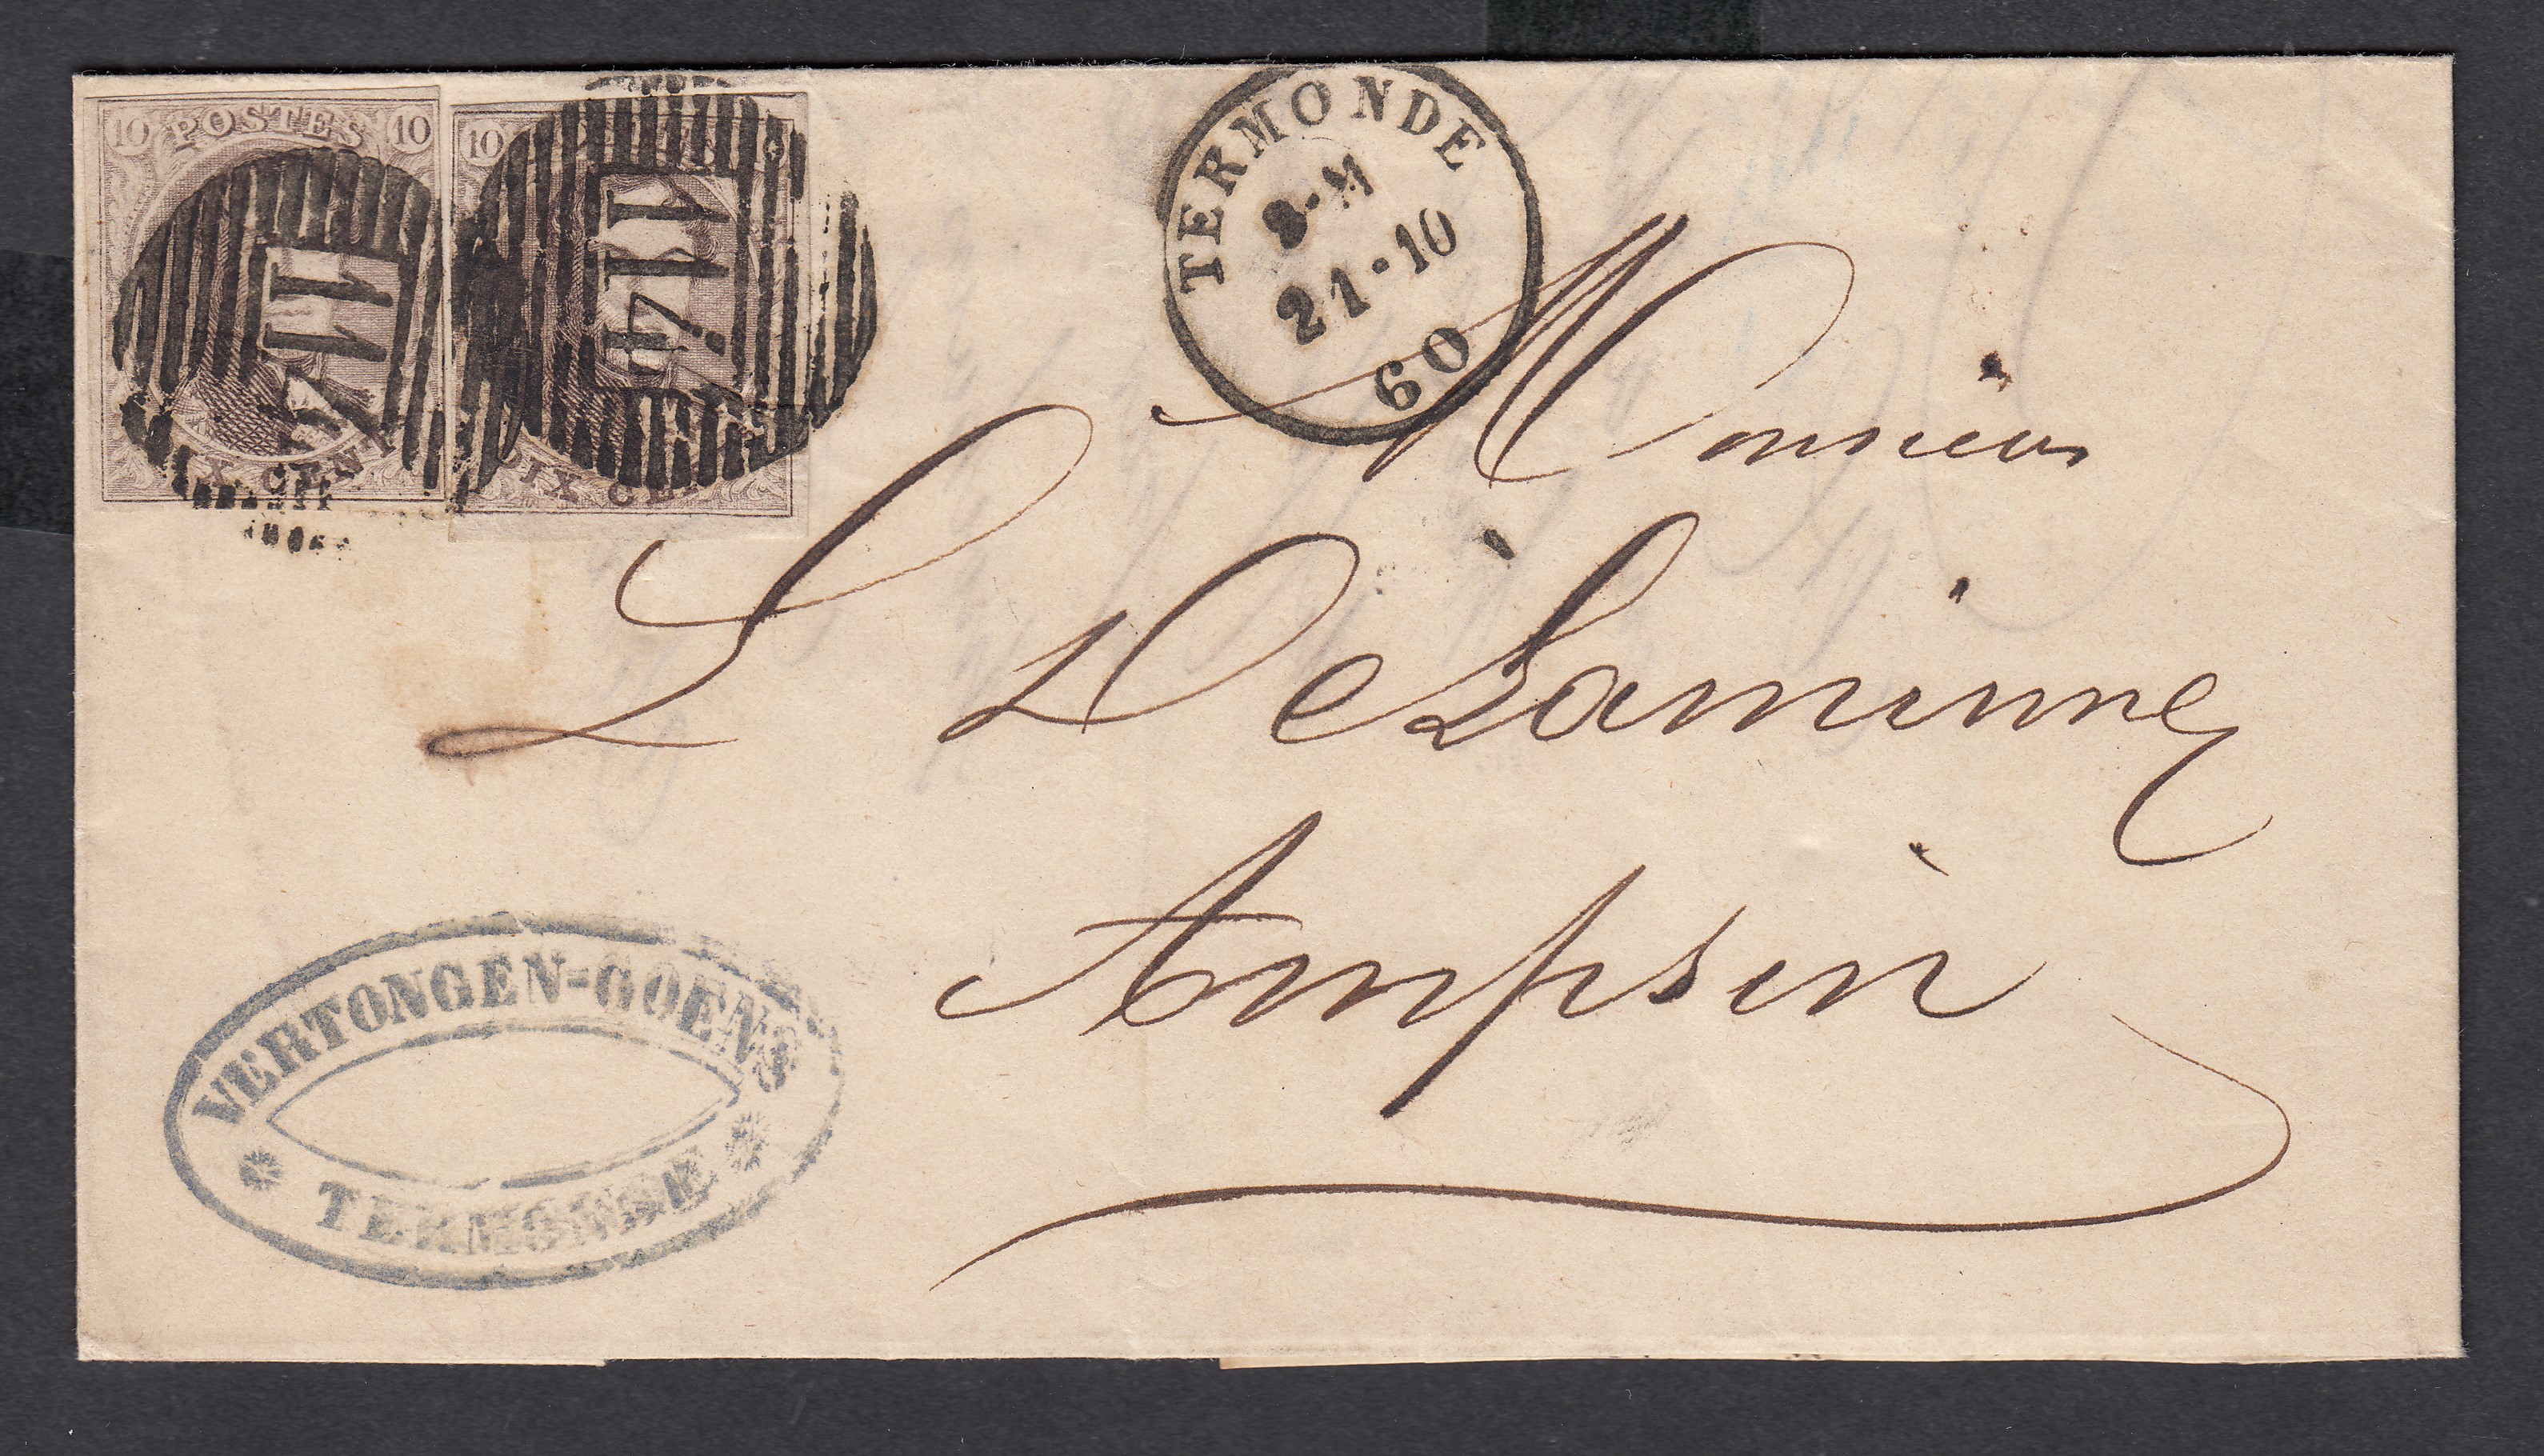 10 POSTES 10
114
IX CEN
10
114
IX CE
TERMONDE
8-M
21·10
60
Monsieur
L DeLaminne
Ampsin
VERTONGEN-GOENS
TERMONDE